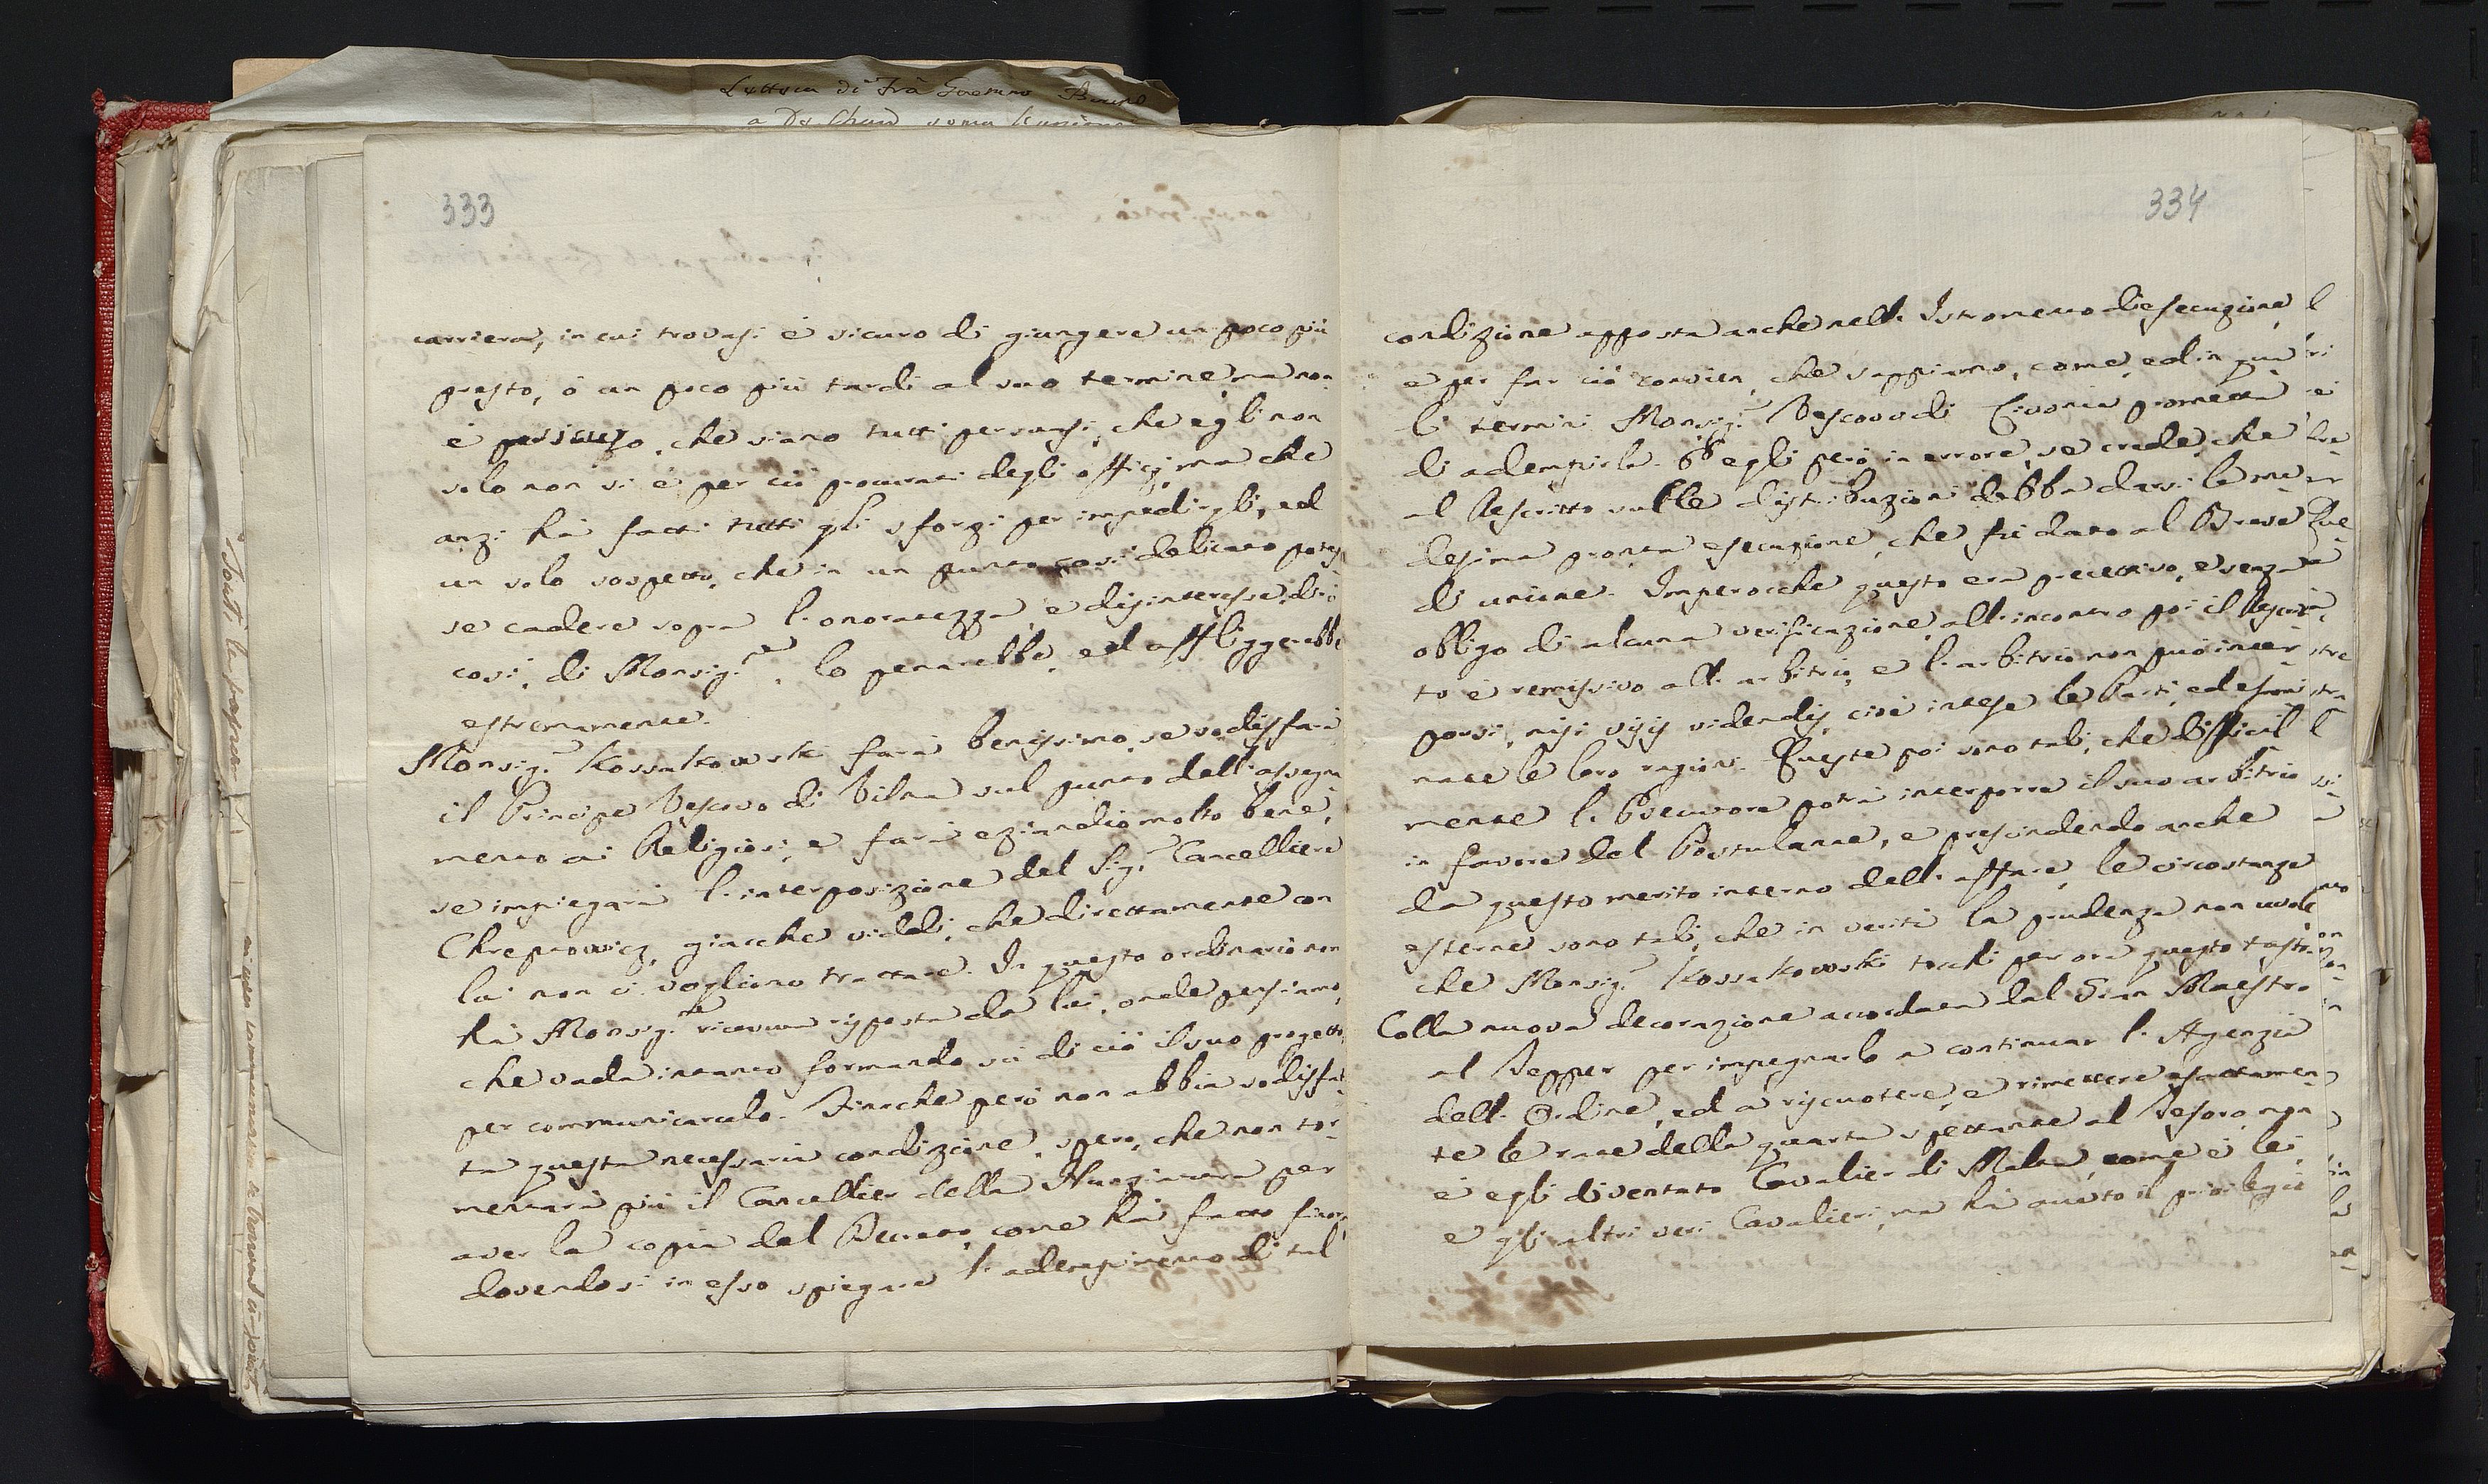 Lettera di Frà Gaetano Bruno
333
carriera, in cui trovasi è sicuro di giungere un poco più
presto, ò un poco più tardi al suo termine, ma non
è persuaso, che siano tutti persuasi, che egli non
solo non si è per ciò procurati degli officj, ma che
anzi hà fatti tutti gli sforzi per impedirgli, ed
un solo sospetto, che in un punto così delicato potes
se cadere sopra l'onoratezza, e disinteresse, dirò
così, di Monsig.re, lo penarebbe, ed affliggerebbe
estremamente.
Monsig.r Kossakowski farà benissimo, se sodisfarà
il Principe Vescovo di Vilna sul punto dell'assegna
mento ai Religiosi, e farà eziandio molto bene,
se impiegarà l'interposizione del Sig.r Cancelliere
Chreptowicz, giacche viddi, che direttamente con
lui non ci vogliono trattare. In questo ordinario non
hà Monsig.re ricevuta risposta da lui, onde pensiamo,
che vada intanto formando sù di ciò il suo progetto,
per communicarcelo. Finche però non abbia sodisfat
ta questa necessaria condizione, spero, che non tor
mentarà più il Cancellier della Nunziatura per
aver la copia del Decreto, come hà fatto finora,
dovendosi in esso spiegare l'adempimento di tal
334
condizione apposta anche nell'Istromento di esecuzione,
e per far ciò convien, che sappiamo, come, ed in qua
li termini Monsig.r Vescovo di Livonia prometta
di adempirla. È egli però in errore, se crede, che
al Rescritto sulle distribuzioni debba darsi la me
desima pronta esecuzione, che fù dato al Breve
di unione. Imperocche questo era precettivo, e senza
obbligo di alcuna verificazione, all'incontro poi il Rescrit
to è remissivo all'arbitrio, e l'arbitrio non può inter
porsi, nisi visis videndis, cioè intese le Parti, ed esami
nate le loro ragioni. Queste poi sono tali, che difficil
mente l'Esecutore potrà interporre il suo arbitrio
in favore del Postulante, e prescindendo anche
da questo merito interno dell'affare, le circostanze
esterne sono tali, che in verità la prudenza non vuole
che Monsig.r Kossakowski tocchi per ora questo tasto.
Colla nuova decorazione accordata dal Gran Maestro
al Tepper per impegnarlo a continuar l'Agenzia
dell'Ordine, ed a riscuotere, e rimettere esattamen
te le rate della quarta spettante al Tesoro, non
è egli diventato Cavalier di Malta, come è lei,
e gli altri veri Cavalieri, ma hà avuto il privilegio